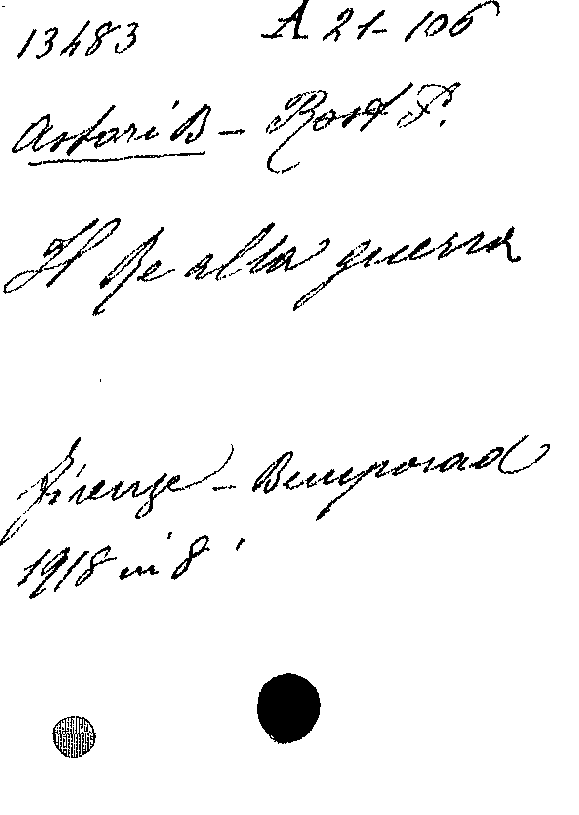 13483 A 21-106
Astori B - Rost P.
Il Re alla guerra
Firenze - Bemporad
1918 in 8'